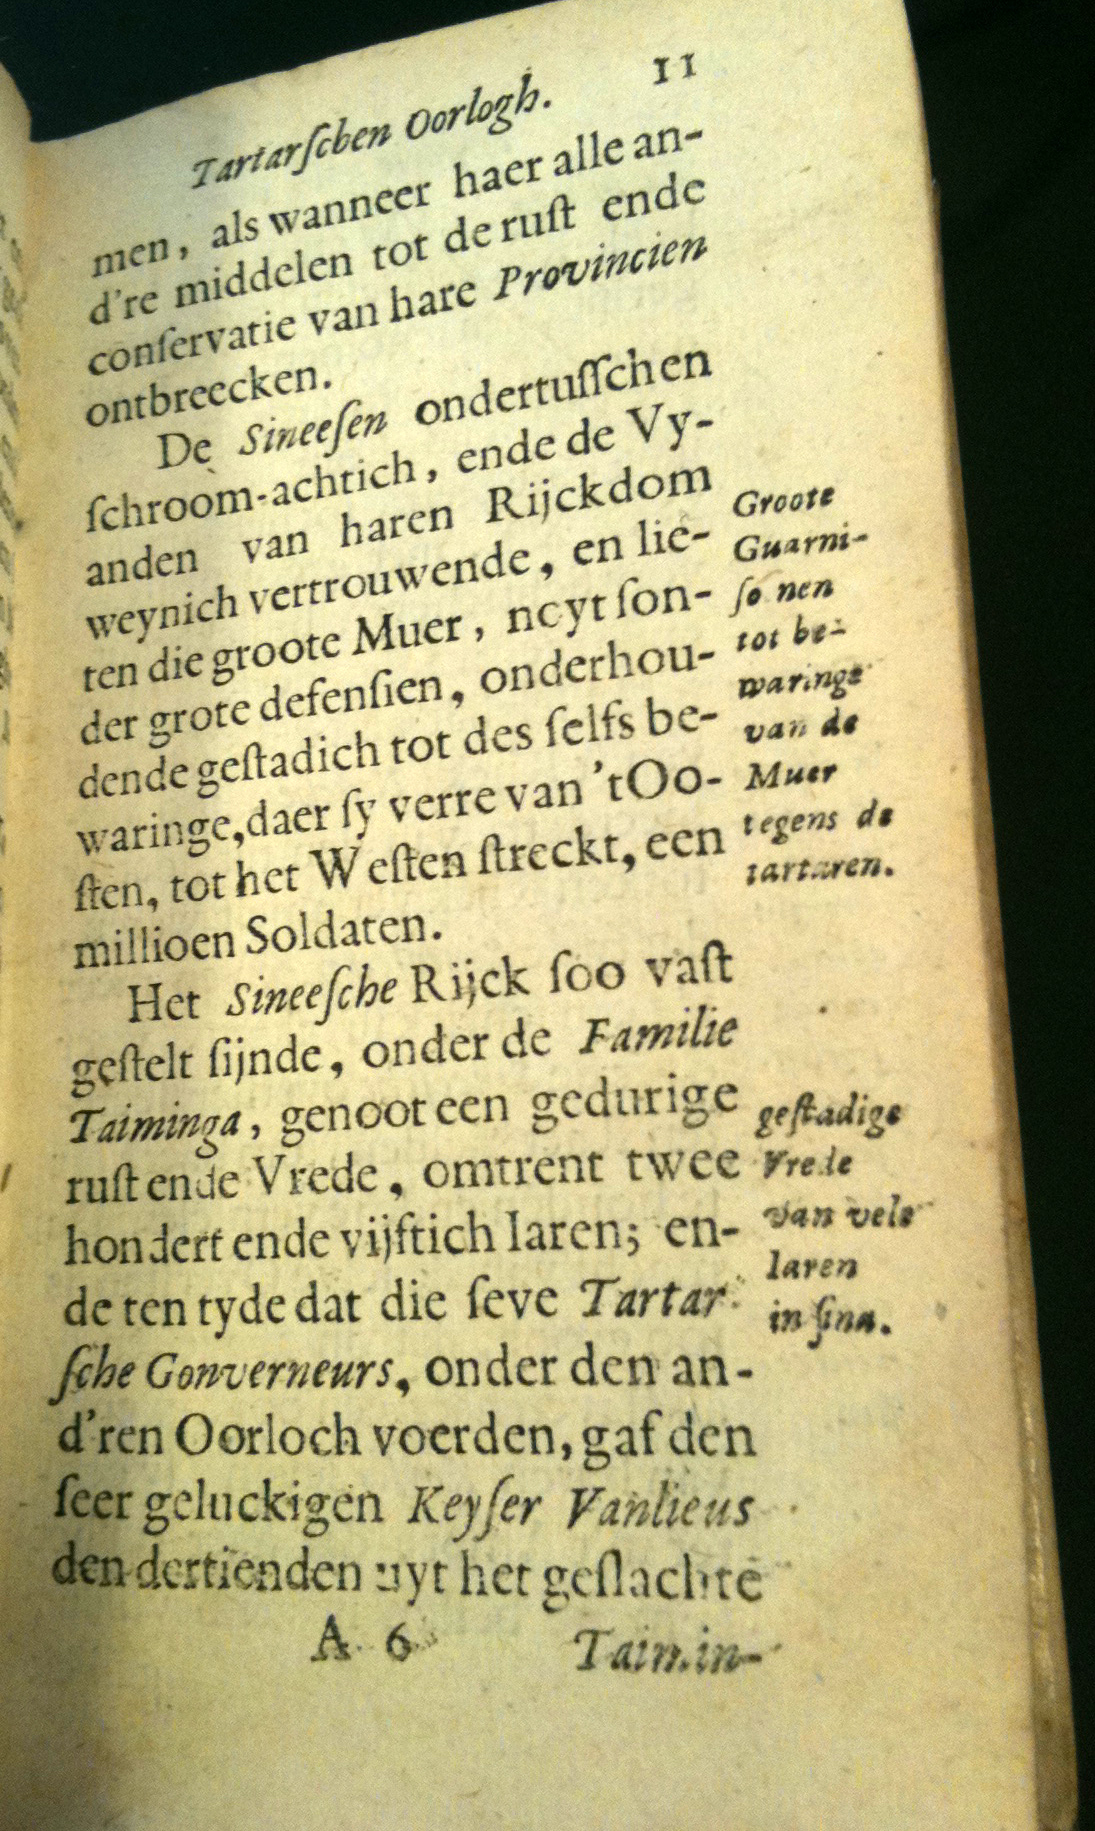 Tartarſchen Oorlogh. 11
men, als wanneer haer alle an-
d're middelen tot de ruſt ende
conſervatie van hare Provincien
ontbreecken.
De Sineeſen ondertuſſchen
ſchroom-achtich, ende de Vy-
anden van haren Rijckdom
weynich vertrouwende, en lie-
ten die groote Muer, noyt ſon-
der grote defenſien, onderhou-
dende geſtadich tot des ſelfs be-
waringe, daer ſy verre van 't Oo-
ſten, tot het Weſten ſtreckt, een
millioen Soldaten.
Groote
Guarni-
ſo nen
tot be-
waringe
van de
Muer
tegens de
tartaren.
Het Sineeſche Rijck ſoo vaſt
geſtelt ſijnde, onder de Familie
Taiminga, genoot een gedurige
ruſt ende Vrede, omtrent twee
hondert ende vijftich Iaren; en-
de ten tyde dat die ſeve Tartar
ſche Gonverneurs, onder den an-
d'ren Oorloch voerden, gaf den
ſeer geluckigen Keyſer Vanlieus
den dertienden uyt het geſlachte
geſtadige
Vrede
van vele
Iaren
in ſina.
A 6 Taimin-